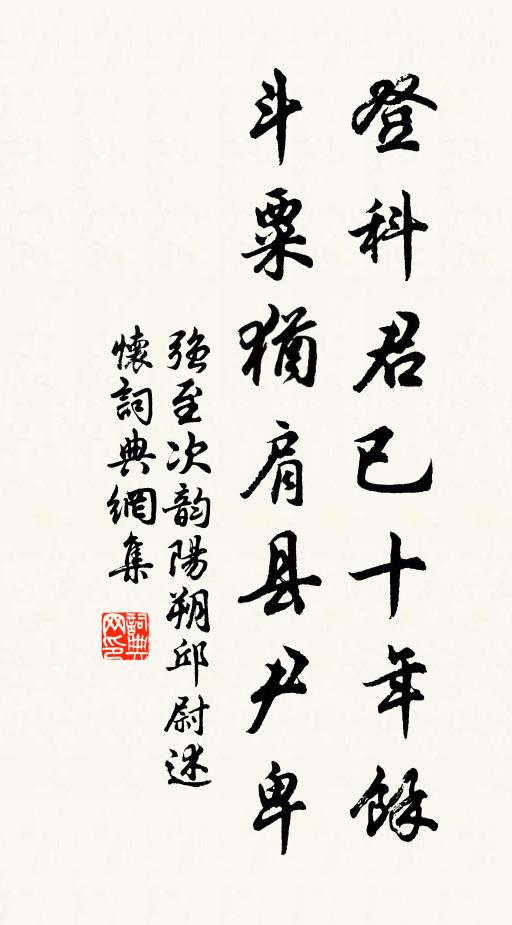 登科君已十年餘
斗粟猶肩县尹卑
强至次韵陽朔邱尉述
懷詞典網集
詞典网印